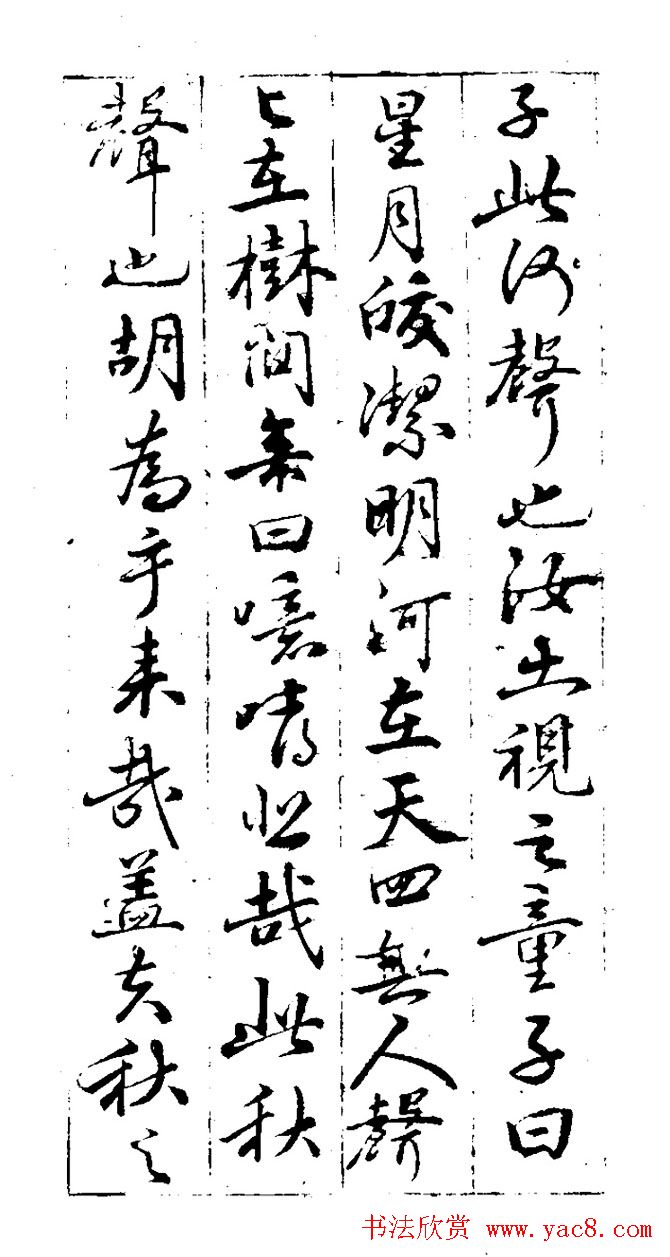 子此何聲也汝出視之童子曰
星月皎潔明河在天四無人聲
〻在樹間余曰噫嘻悲哉此秋
聲也胡為乎來哉蓋夫秋之
书法欣赏 www.yac8.com